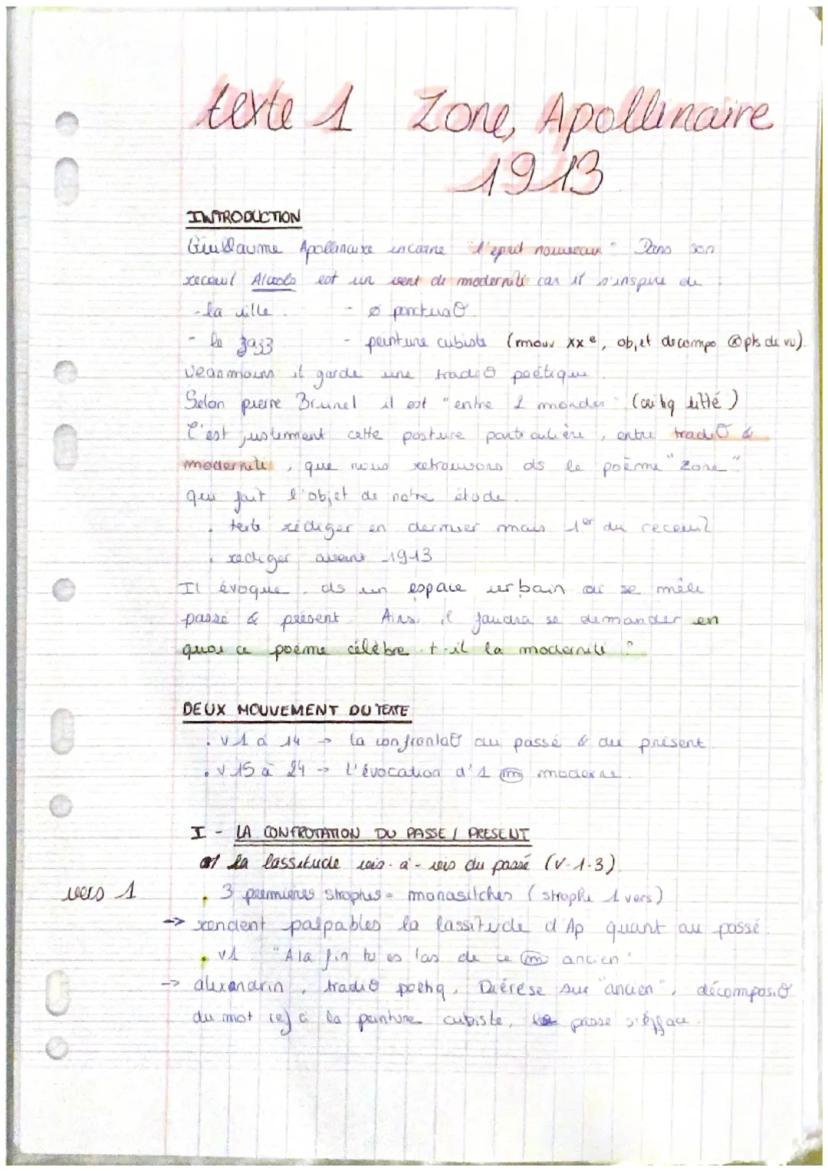 texte 1 Zone, Apollinaire
1913
INTRODUCTION
Guillaume Apollinaire incarne "l'esprit nouveau". Dans son
receuil Alcools est un vent de modernité car il s'inspire de :
- la ville. - ø ponctuaθ
- le jazz - peinture cubiste (mouv XXe, objet décompo @ pts de vu).
Neanmoins il garde une tradiθ poétique.
Selon pierre Brunel il est "entre 2 mondes" (critiq litté)
C'est justement cette posture particulière, entre tradiθ &
modernité, que nous retrouvons ds le poème "Zone"
qui fait l'objet de notre étude.
. texte rédiger en dernier mais 1er du receuil
. rediger avant 1913
Il évoque ds un espace urbain où se mêle
passé & présent. Ainsi il faudra se demander en
quoi ce poème célèbre-t-il la modernité ?
DEUX MOUVEMENT DU TEXTE
. v 1 à 14 → la confrontaθ du passé & du présent
. v 15 à 24 → l'évocation d'1 ⓜ moderne.
I - LA CONFROTATION DU PASSE / PRESENT
a/ la lassitude vis-à-vis du passé (v-1-3)
vers 1
. 3 premières strophes = monastiches (strophe 1 vers)
→ rendent palpables la lassitude d'Ap quant au passé.
. v1 "A la fin tu es las de ce ⓜ ancien"
→ alexandrin, tradiθ poétiq. Diérèse sur "ancien", décomposiθ
du mot réf à la peinture cubiste, passé s'efface.